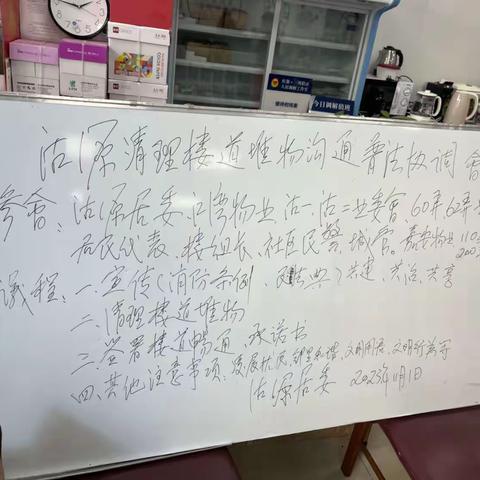 今日调解值班
沽源清理楼道堆物沟通普法协调会
参会：沽源居委、江湾物业、沽一、沽二业委会 60弄62弄
居民代表、楼组长、社区民警、城管。嘉宏物业110
议程：一.宣传（消防条例、民法典）共建、共治、共享
二.清理楼道堆物
三.签署楼道畅通承诺书
四.其他注意事项：文明行为等
沽源居委 2023年11月1日